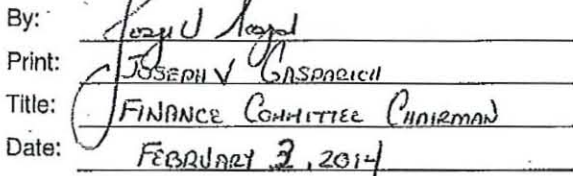 By:
Print: JOSEPH V GASPARICH
Title: FINANCE COMMITTEE CHAIRMAN
Date: FEBRUARY 3, 2014